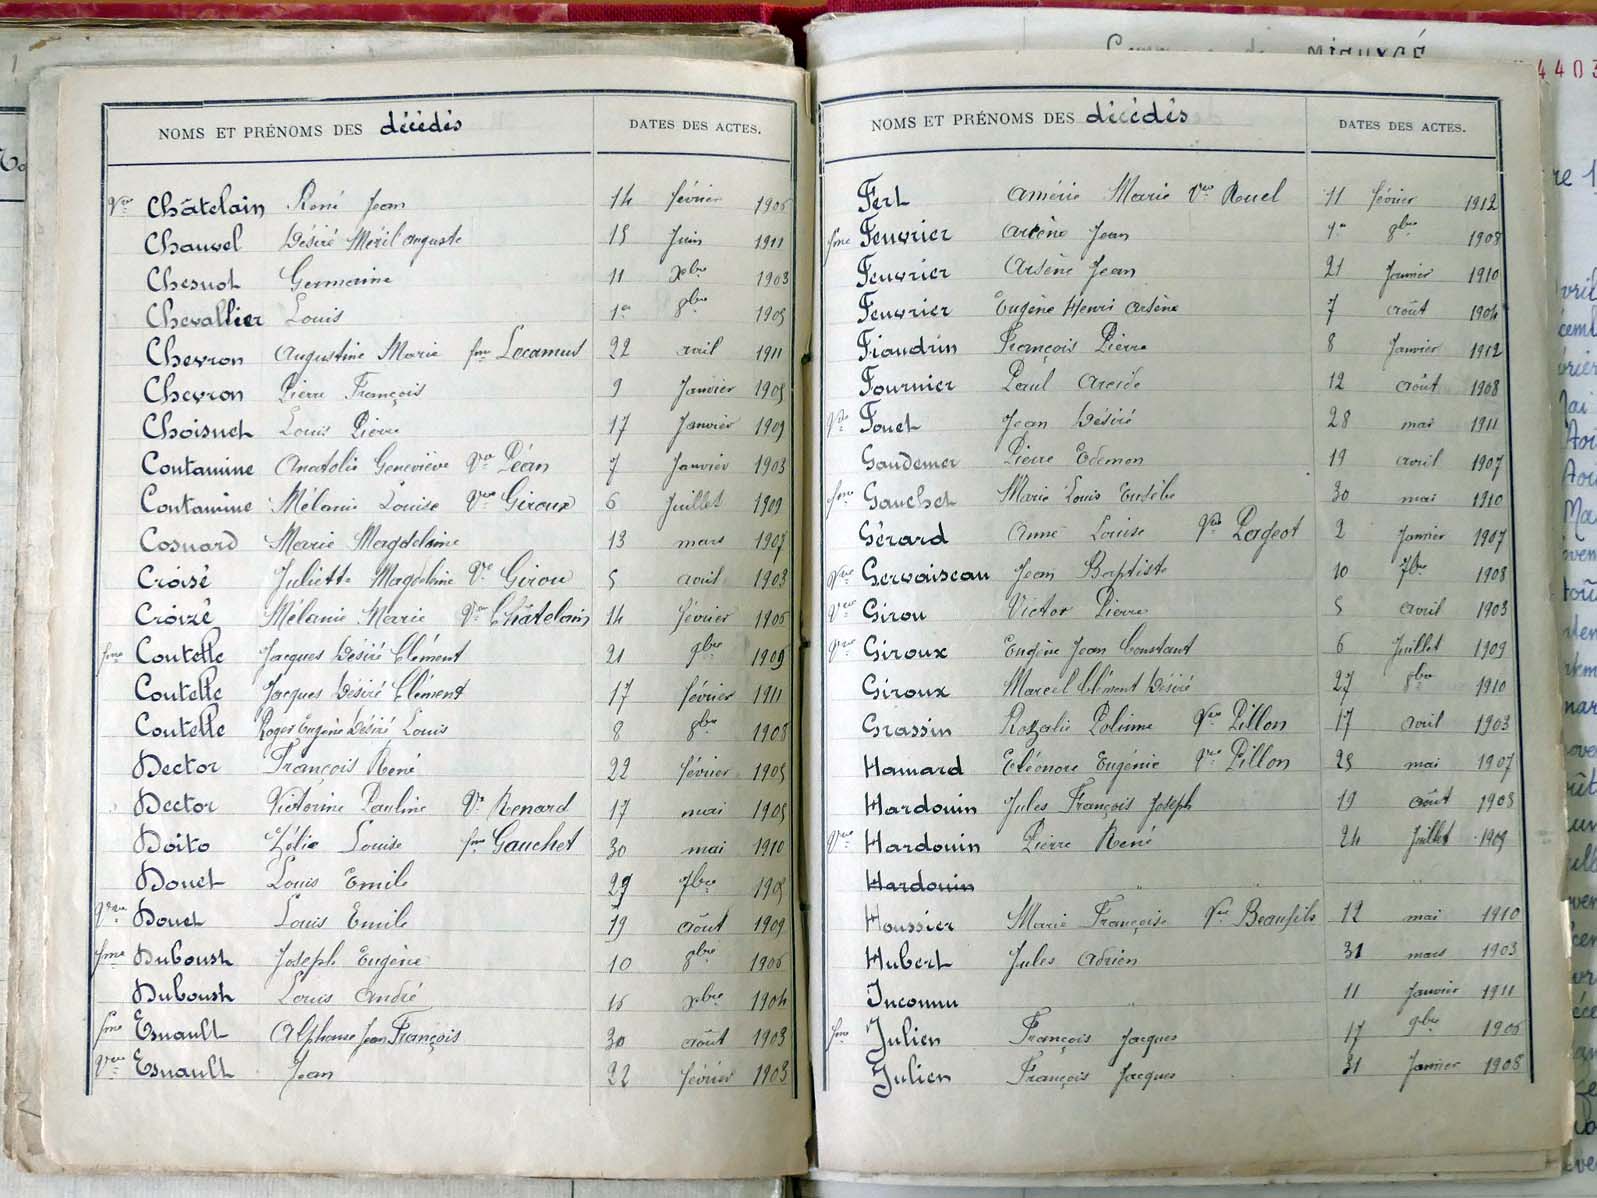 NOMS ET PRÉNOMS DES décédés DATES DES ACTES.
Vve Châtelain René Jean 14 février 1906
Chauvel Désiré Méril Auguste 15 Juin 1911
Chesnot Germaine 11 Xbre 1903
Chevallier Louis 1er 8bre 1905
Chevron Augustine Marie fme Locamus 22 avril 1911
Chevron Pierre François 9 Janvier 1905
Choisnet Louis Pierre 17 Janvier 1909
Contamine Anatolie Geneviève Vve Péan 7 Janvier 1903
Contamine Mélanie Louise Vve Giroux 6 Juillet 1909
Cosnard Marie Magdelaine 13 mars 1907
Croisé Juliette Magdelaine Vve Girou 5 avril 1903
Croizé Mélanie Marie Vve Châtelain 14 février 1906
fme Coutelle Jacques Désiré Clément 21 9bre 1909
Coutelle Jacques Désiré Clément 17 février 1911
Coutelle Roger Eugène Désiré Louis 8 8bre 1908
Dector François René 22 février 1905
Dector Victorine Pauline Vve Renard 17 mai 1905
Doito Zélie Louise fme Gauchet 30 mai 1910
Douet Louis Emile 29 7bre 1905
Vve Douet Louis Emile 19 août 1909
fme Duboust Joseph Eugène 10 8bre 1906
Duboust Louis André 15 Xbre 1904
fme Esnault Alphonse Jean François 30 août 1903
Vve Esnault Jean 22 février 1903
4403
NOMS ET PRÉNOMS DES décédés DATES DES ACTES.
Fert Amérie Marie Vve Ruel 11 février 1912
fme Feuvrier Arsène Jean 1er 8bre 1908
Feuvrier Arsène Jean 21 Janvier 1910
Feuvrier Eugène Henri Arsène 7 août 1904
Fiaudrin François Pierre 8 Janvier 1912
Fournier Paul Arcide 12 août 1908
Vve Fouet Jean Désiré 28 mai 1911
Gaudemer Pierre Edemon 19 avril 1907
fme Gauchet Marie Louis Eusèbe 30 mai 1910
Gérard Anne Louise Vve Pageot 2 Janvier 1907
Vve Gervaiseau Jean Baptiste 10 7bre 1908
Vve Girou Victor Pierre 5 avril 1903
Vve Giroux Eugène Jean Constant 6 Juillet 1909
Giroux Marcel Clément Désiré 27 8bre 1910
Grassin Rozalie Poline Vve Pillon 17 avril 1903
Hamard Eléonore Eugénie Vve Pillon 25 mai 1907
Hardouin Jules François Joseph 19 août 1903
Vve Hardouin Pierre René 24 Juillet 1909
Hardouin " "
Houssier Marie Françoise Vve Beaufils 12 mai 1910
Hubert Jules Adrien 31 mars 1903
Inconnu " 11 Janvier 1911
fme Julien François Jacques 17 9bre 1906
Julien François Jacques 31 Janvier 1908